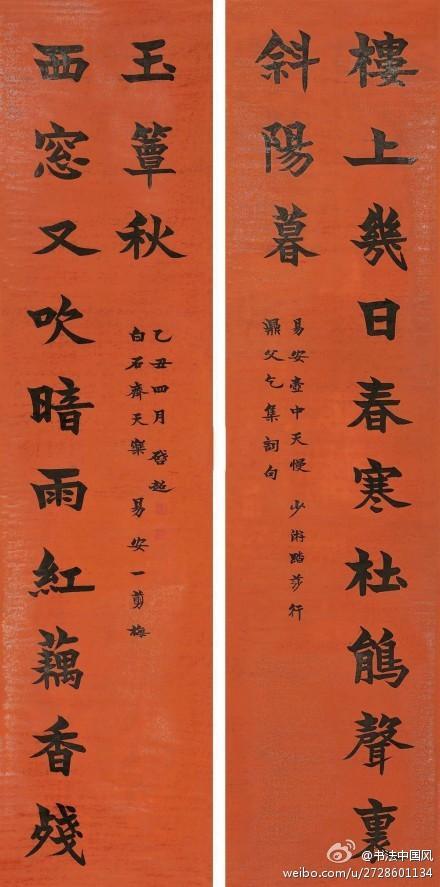 樓上幾日春寒杜鵑聲裏
斜陽暮
易安壺中天慢 少游踏莎行
鼎父乞集詞句
西窓又吹暗雨紅藕香殘
玉簟秋
白石齊天樂 易安一翦梅
乙丑四月啓超
@书法中国风
weibo.com/u/2728601134